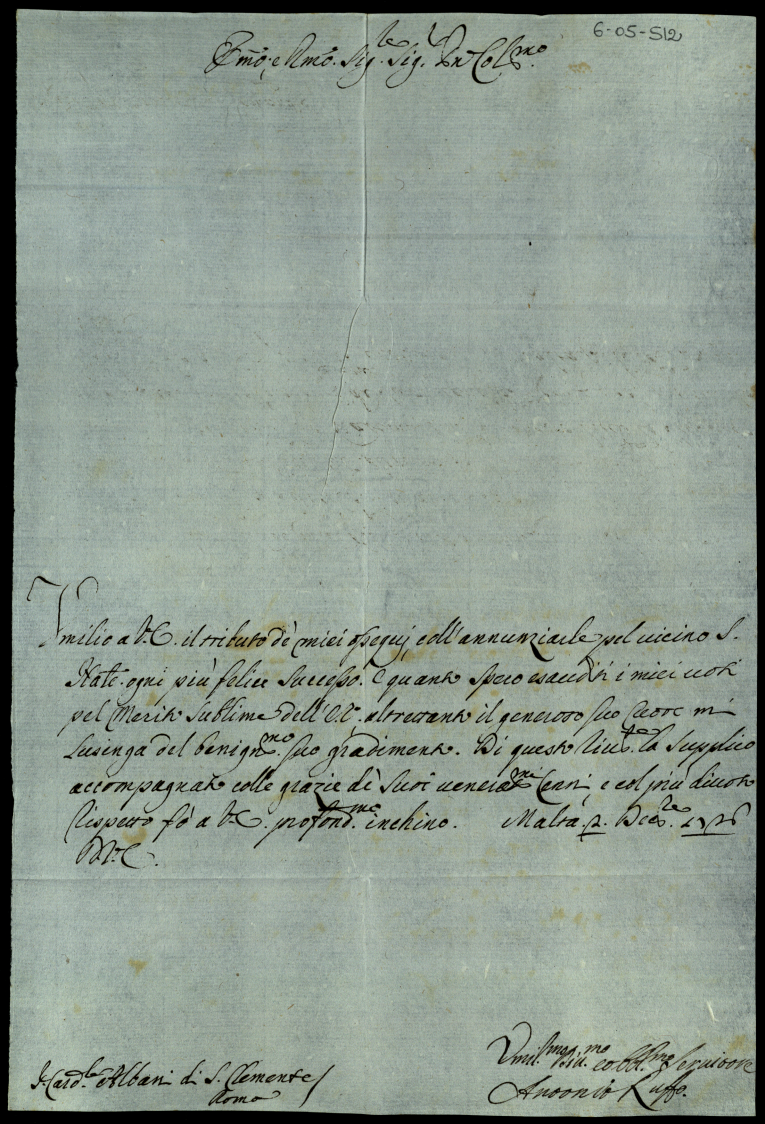 6-05-512
Emo, e Rmo. Sig.re Sig.r Pn Colmo.
Umilio a V.E. il tributo de miei ossequij, coll'annunziarle pel vicino S.
Nate. ogni più felice successo. E quanto spero esauditi i miei voti
pel Merito sublime dell'E.V. altrettanto il generoso suo Cuore mi
lusinga del benignmo. suo gradimento. Di questo rive.te la supplico
accompagnato colle grazie de suoi veneratmi. Cenni, e col più divoto
rispetto fò a V.E. profondme. inchino. Malta. 2. Dece.bre 1726
Di V.E.
S. Card.le Albani di S. Clemente /
Roma
Umil.mo Div.mo ed obbl.mo Servitore
Antonio Ruffo.